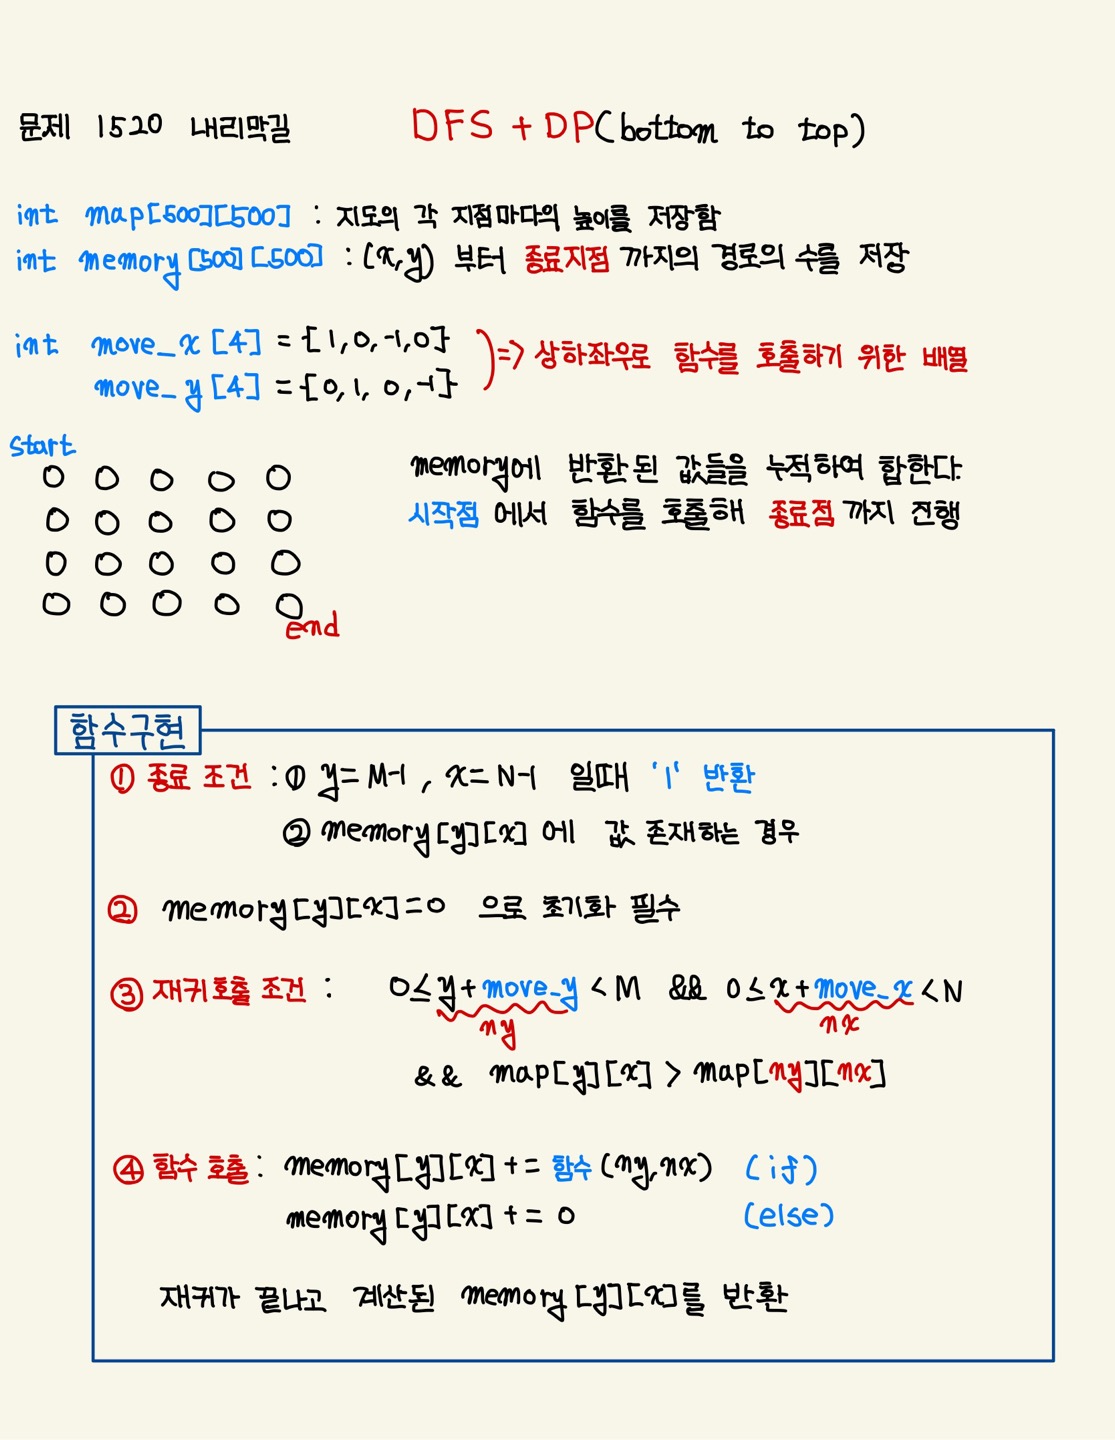 문제 1520 내리막길 DFS + DP(bottom to top)
int map[500][500] : 지도의 각 지점마다의 높이를 저장함
int memory[500][500] : (x,y) 부터 종료지점 까지의 경로의 수를 저장
int move_x [4] = {1,0,-1,0}
move_y [4] = {0,1,0,-1}
=> 상하좌우로 함수를 호출하기 위한 배열
start
end
memory에 반환된 값들을 누적하여 합한다.
시작점 에서 함수를 호출해 종료점 까지 진행
함수구현
① 종료 조건 : ① y=M-1 , x=N-1 일때 '1' 반환
② memory[y][x] 에 값 존재하는 경우
② memory[y][x]=0 으로 초기화 필수
③ 재귀호출 조건 : 0≤y+move_y<M && 0≤x+move_x<N
ny nx
&& map[y][x] > map[ny][nx]
④ 함수 호출 : memory[y][x] += 함수(ny,nx) (if)
memory[y][x] += 0 (else)
재귀가 끝나고 계산된 memory[y][x]를 반환